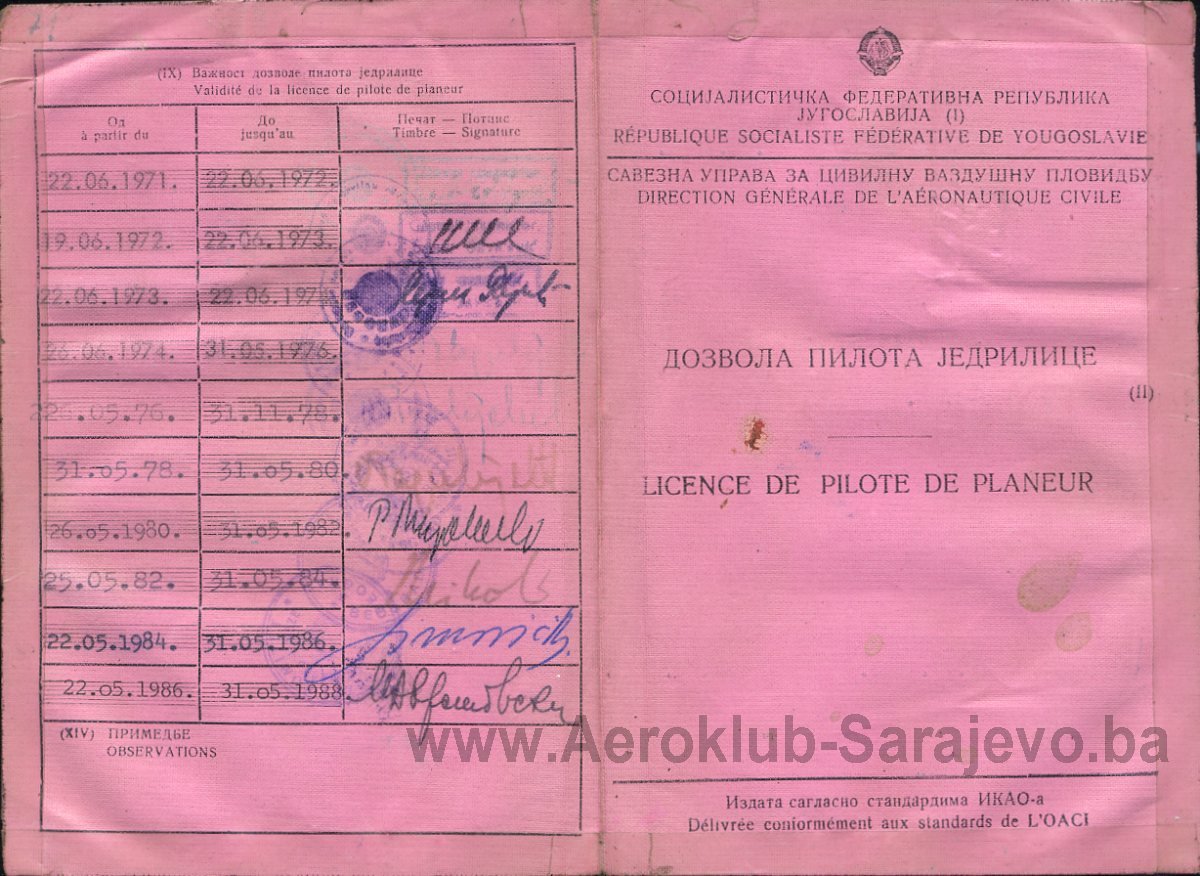 (IX) Важност дозволе пилота једрилице
Validité de la licence de pilote de planeur
Од До Печат — Потпис
à partir du jusqu'au Timbre — Signature
22.06.1971. 22.06.1972.
19.06.1972. 22.06.1973.
22.06.1973. 22.06.197
26.06.1974. 31.05.1976.
26.05.76. 31.11.78.
31.05.78. 31.05.80.
26.05.1980. 31.05.1982.
25.05.82. 31.05.84.
22.05.1984. 31.05.1986.
22.05.1986. 31.05.1988.
(XIV) ПРИМЕДБЕ
OBSERVATIONS
СОЦИЈАЛИСТИЧКА ФЕДЕРАТИВНА РЕПУБЛИКА
ЈУГОСЛАВИЈА (I)
RÉPUBLIQUE SOCIALISTE FÉDÉRATIVE DE YOUGOSLAVIE
САВЕЗНА УПРАВА ЗА ЦИВИЛНУ ВАЗДУШНУ ПЛОВИДБУ
DIRECTION GÉNÉRALE DE L'AÉRONAUTIQUE CIVILE
ДОЗВОЛА ПИЛОТА ЈЕДРИЛИЦЕ
(II)
LICENCE DE PILOTE DE PLANEUR
www.Aeroklub-Sarajevo.ba
Издата сагласно стандардима ИКАО-а
Délivrée conformément aux standards de L'OACI